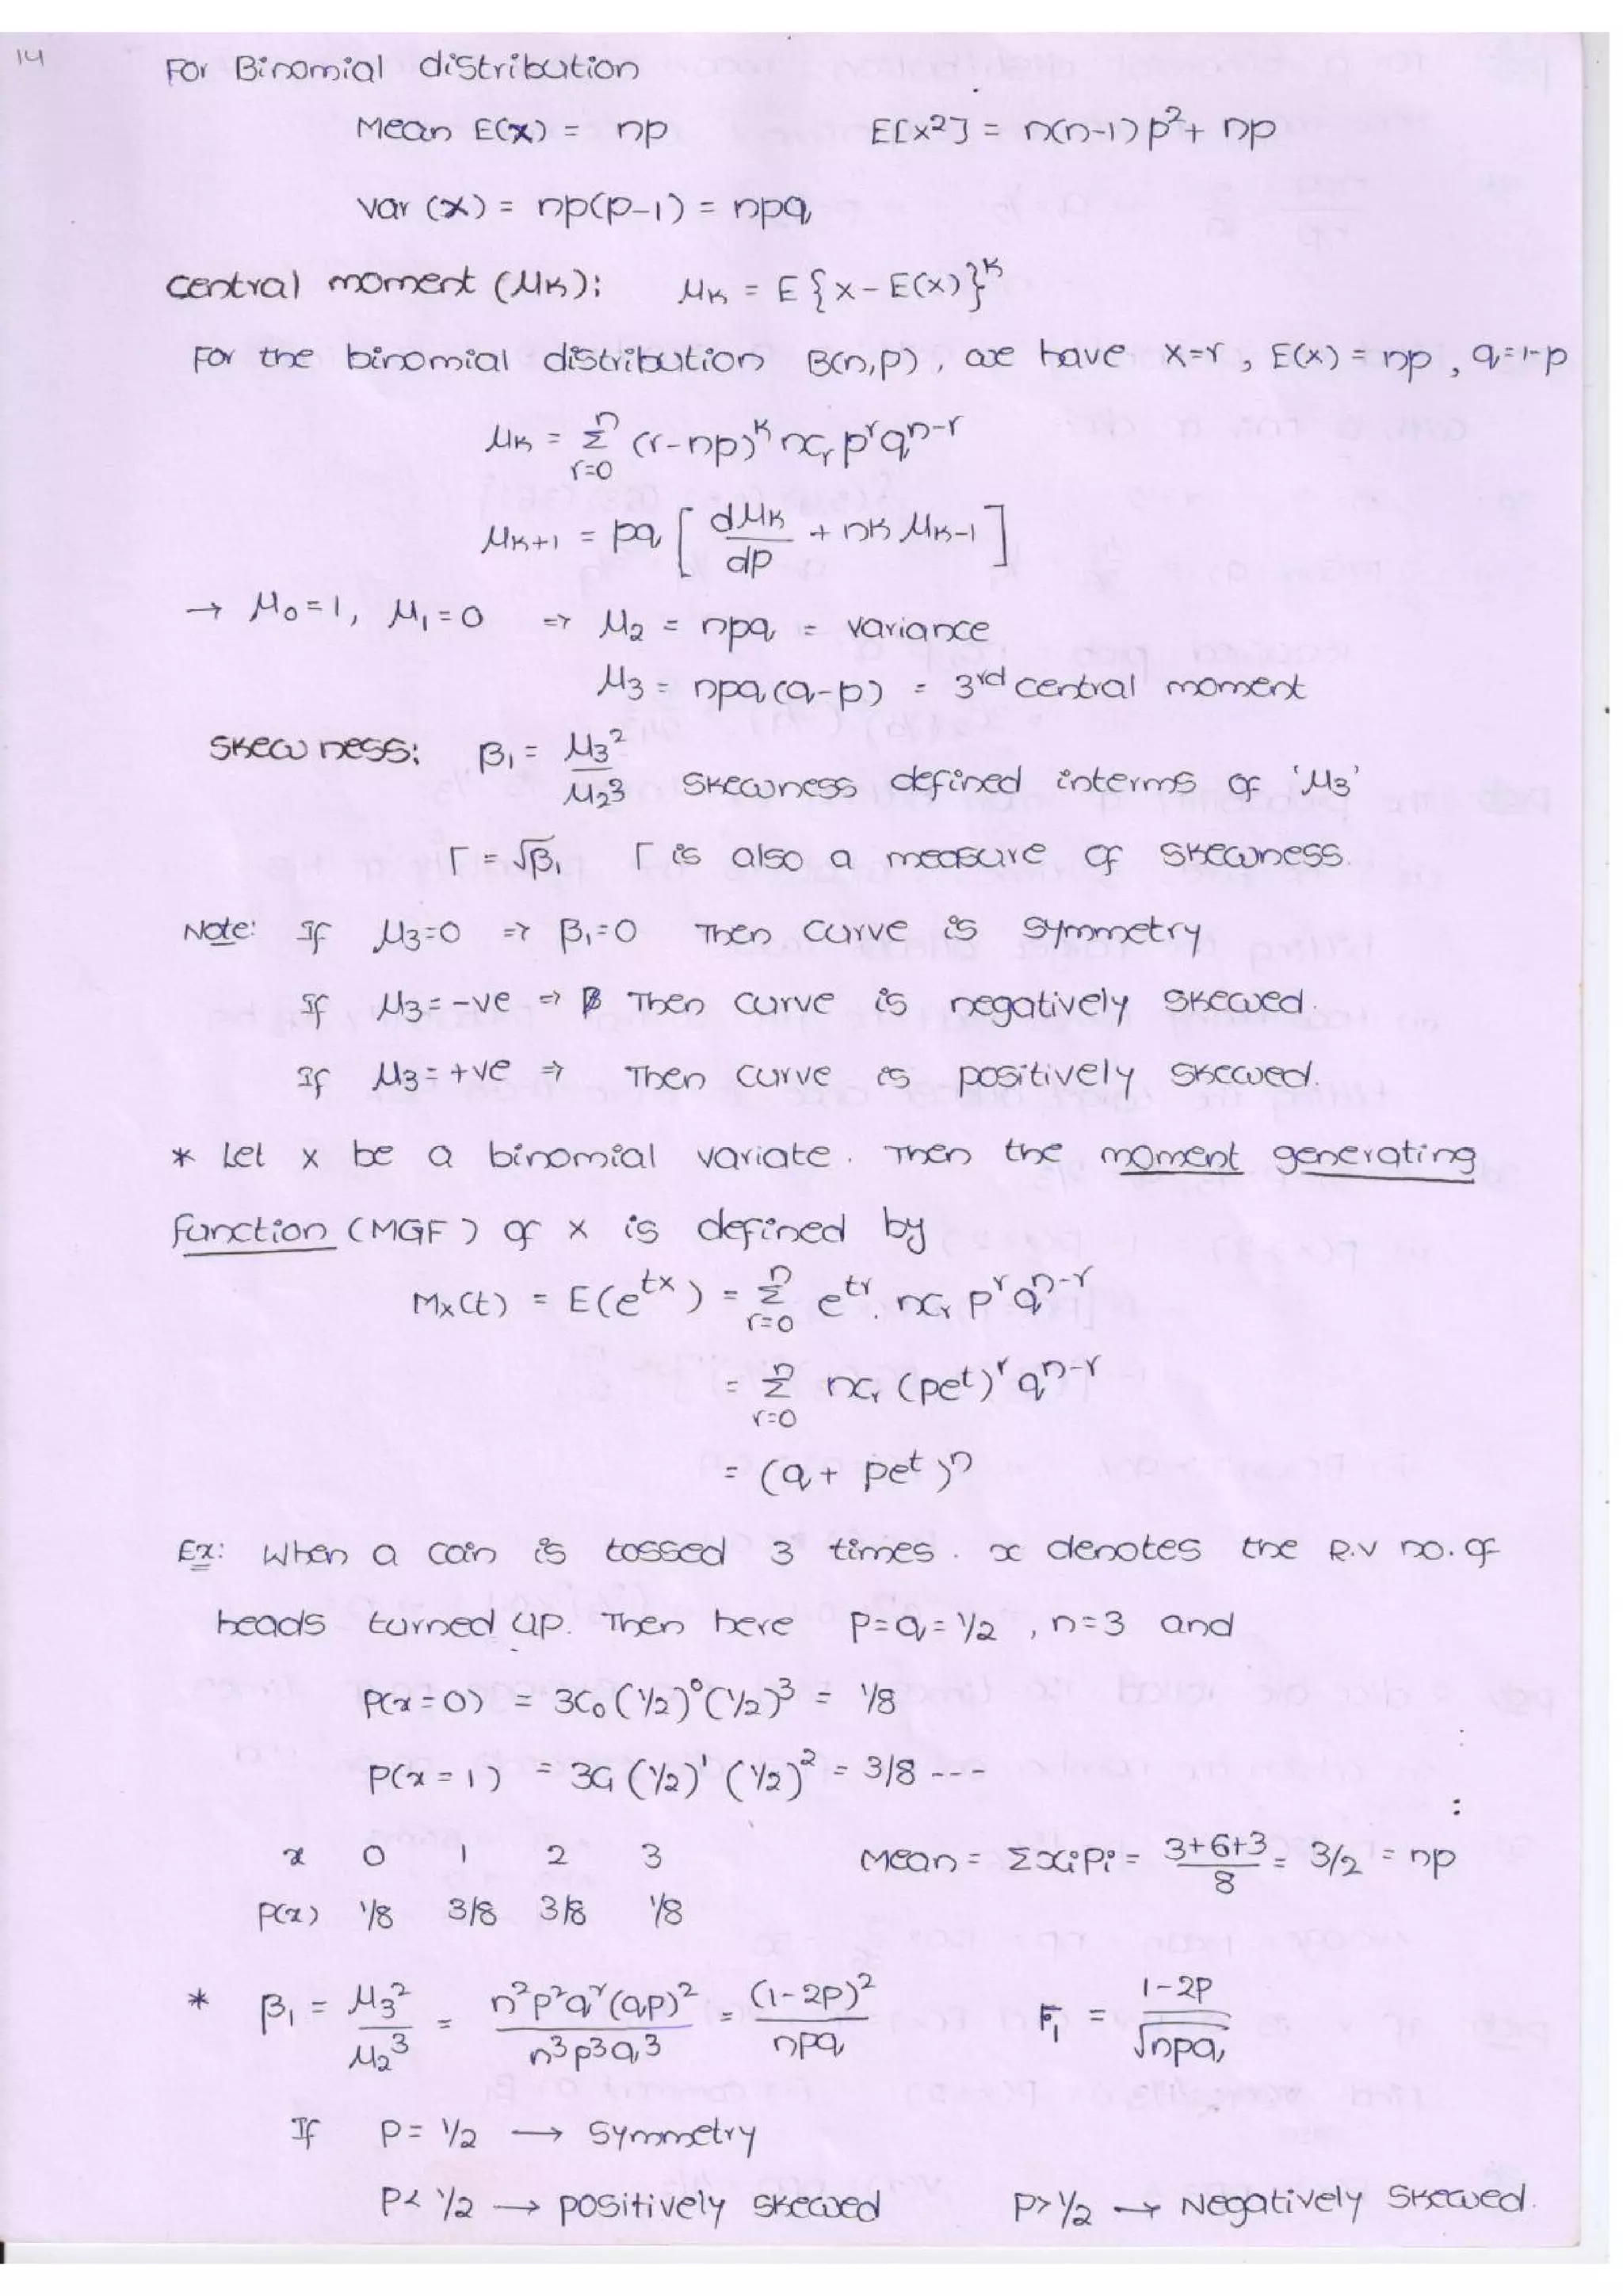 14
For Binomial distribution
Mean E(X) = np E[X²] = n(n-1)p² + np
var (X) = np(p-1) = npq
central moment (μₖ): μₖ = E{x - E(x)}ᵏ
For the binomial distribution B(n,p), we have X=r, E(X) = np, q=1-p
μₖ = Σⁿᵣ₌₀ (r-np)ᵏ ncᵣ pʳqⁿ⁻ʳ
μₖ₊₁ = pq [ dμₖ/dp + nk μₖ₋₁ ]
→ μ₀=1, μ₁=0 ⇒ μ₂ = npq = variance
μ₃ = npq(q-p) = 3rd central moment
Skew ness: β₁ = μ₃²/μ₂³ Skewness defined interms of 'μ₃'
Γ = √β₁ Γ is also a measure of skewness.
Note: If μ₃=0 ⇒ β₁=0 Then curve is symmetry
If μ₃=-ve ⇒ Then curve is negatively skewed.
If μ₃=+ve ⇒ Then curve is positively skewed.
* Let x be a binomial variate. Then the moment generating
function (MGF) of x is defined by
Mₓ(t) = E(eᵗˣ) = Σⁿᵣ₌₀ eᵗʳ. ncᵣ pʳqⁿ⁻ʳ
= Σⁿᵣ₌₀ ncᵣ (peᵗ)ʳ qⁿ⁻ʳ
= (q + peᵗ)ⁿ
Ex: When a coin is tossed 3 times. x denotes the R.V no. of
heads turned up. Then here P=q=1/2, n=3 and
P(x=0) = 3C₀(1/2)⁰(1/2)³ = 1/8
P(x=1) = 3C₁(1/2)¹(1/2)² = 3/8 ---
x 0 1 2 3 Mean = Σxᵢpᵢ = (3+6+3)/8 = 3/2 = np
P(x) 1/8 3/8 3/8 1/8
* β₁ = μ₃²/μ₂³ = n²p²q²(qp)²/n³p³q³ = (1-2p)²/npq Γ₁ = (1-2p)/√npq
If P=1/2 → Symmetry
P<1/2 → positively skewed P>1/2 → Negatively Skewed.